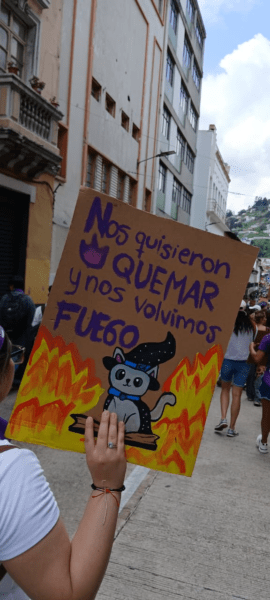 Nos quisieron
QUEMAR
y nos volvimos
FUEGO